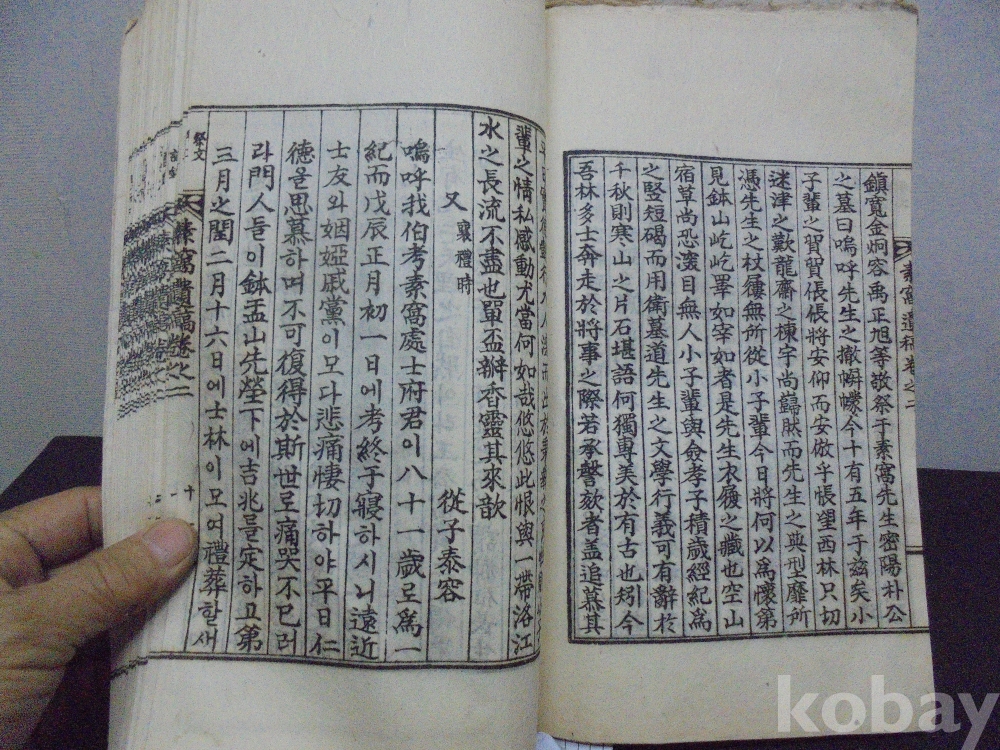 鎭寬金炯容禹正旭等敬祭于素窩先生密陽朴公
之墓曰嗚呼先生之撤幈幪今十有五年于玆矣小
子輩之貿貿倀倀將安仰而安倣乎悵望西林只切
迷津之歎龍齋之棟宇尚巋肰而先生之典型靡所
憑先生之杖屨無所從小子輩今日將何以爲懷第
見鉢山屹屹睪如宰如者是先生衣履之藏也空山
宿草尚恐滾目無人小子輩與僉孝子積歲經紀爲
之竪短碣而用衛墓道先生之文學行義可有辭於
千秋則寒山之片石堪語何獨專美於有古也矧今
吾林多士奔走於將事之際若承謦欬者盖追慕其
素窩遺稿卷之二
輩之情私感動尤當何如哉悠悠此恨與一帶洛江
水之長流不盡也單盃瓣香靈其來歆
又 襄禮時
從子泰容
嗚呼我伯考素窩處士府君이八十一歲로爲一
紀而戊辰正月初一日에考終于寢하시니遠近
士友와姻婭戚黨이모다悲痛悽切하야平日仁
德을思慕하며不可復得於斯世로痛哭不已러
라門人등이鉢盂山先塋下에吉兆를定하고第
三月之閏二月十六日에士林이모여禮葬할새
素窩遺稿卷之二
祭文
kobay